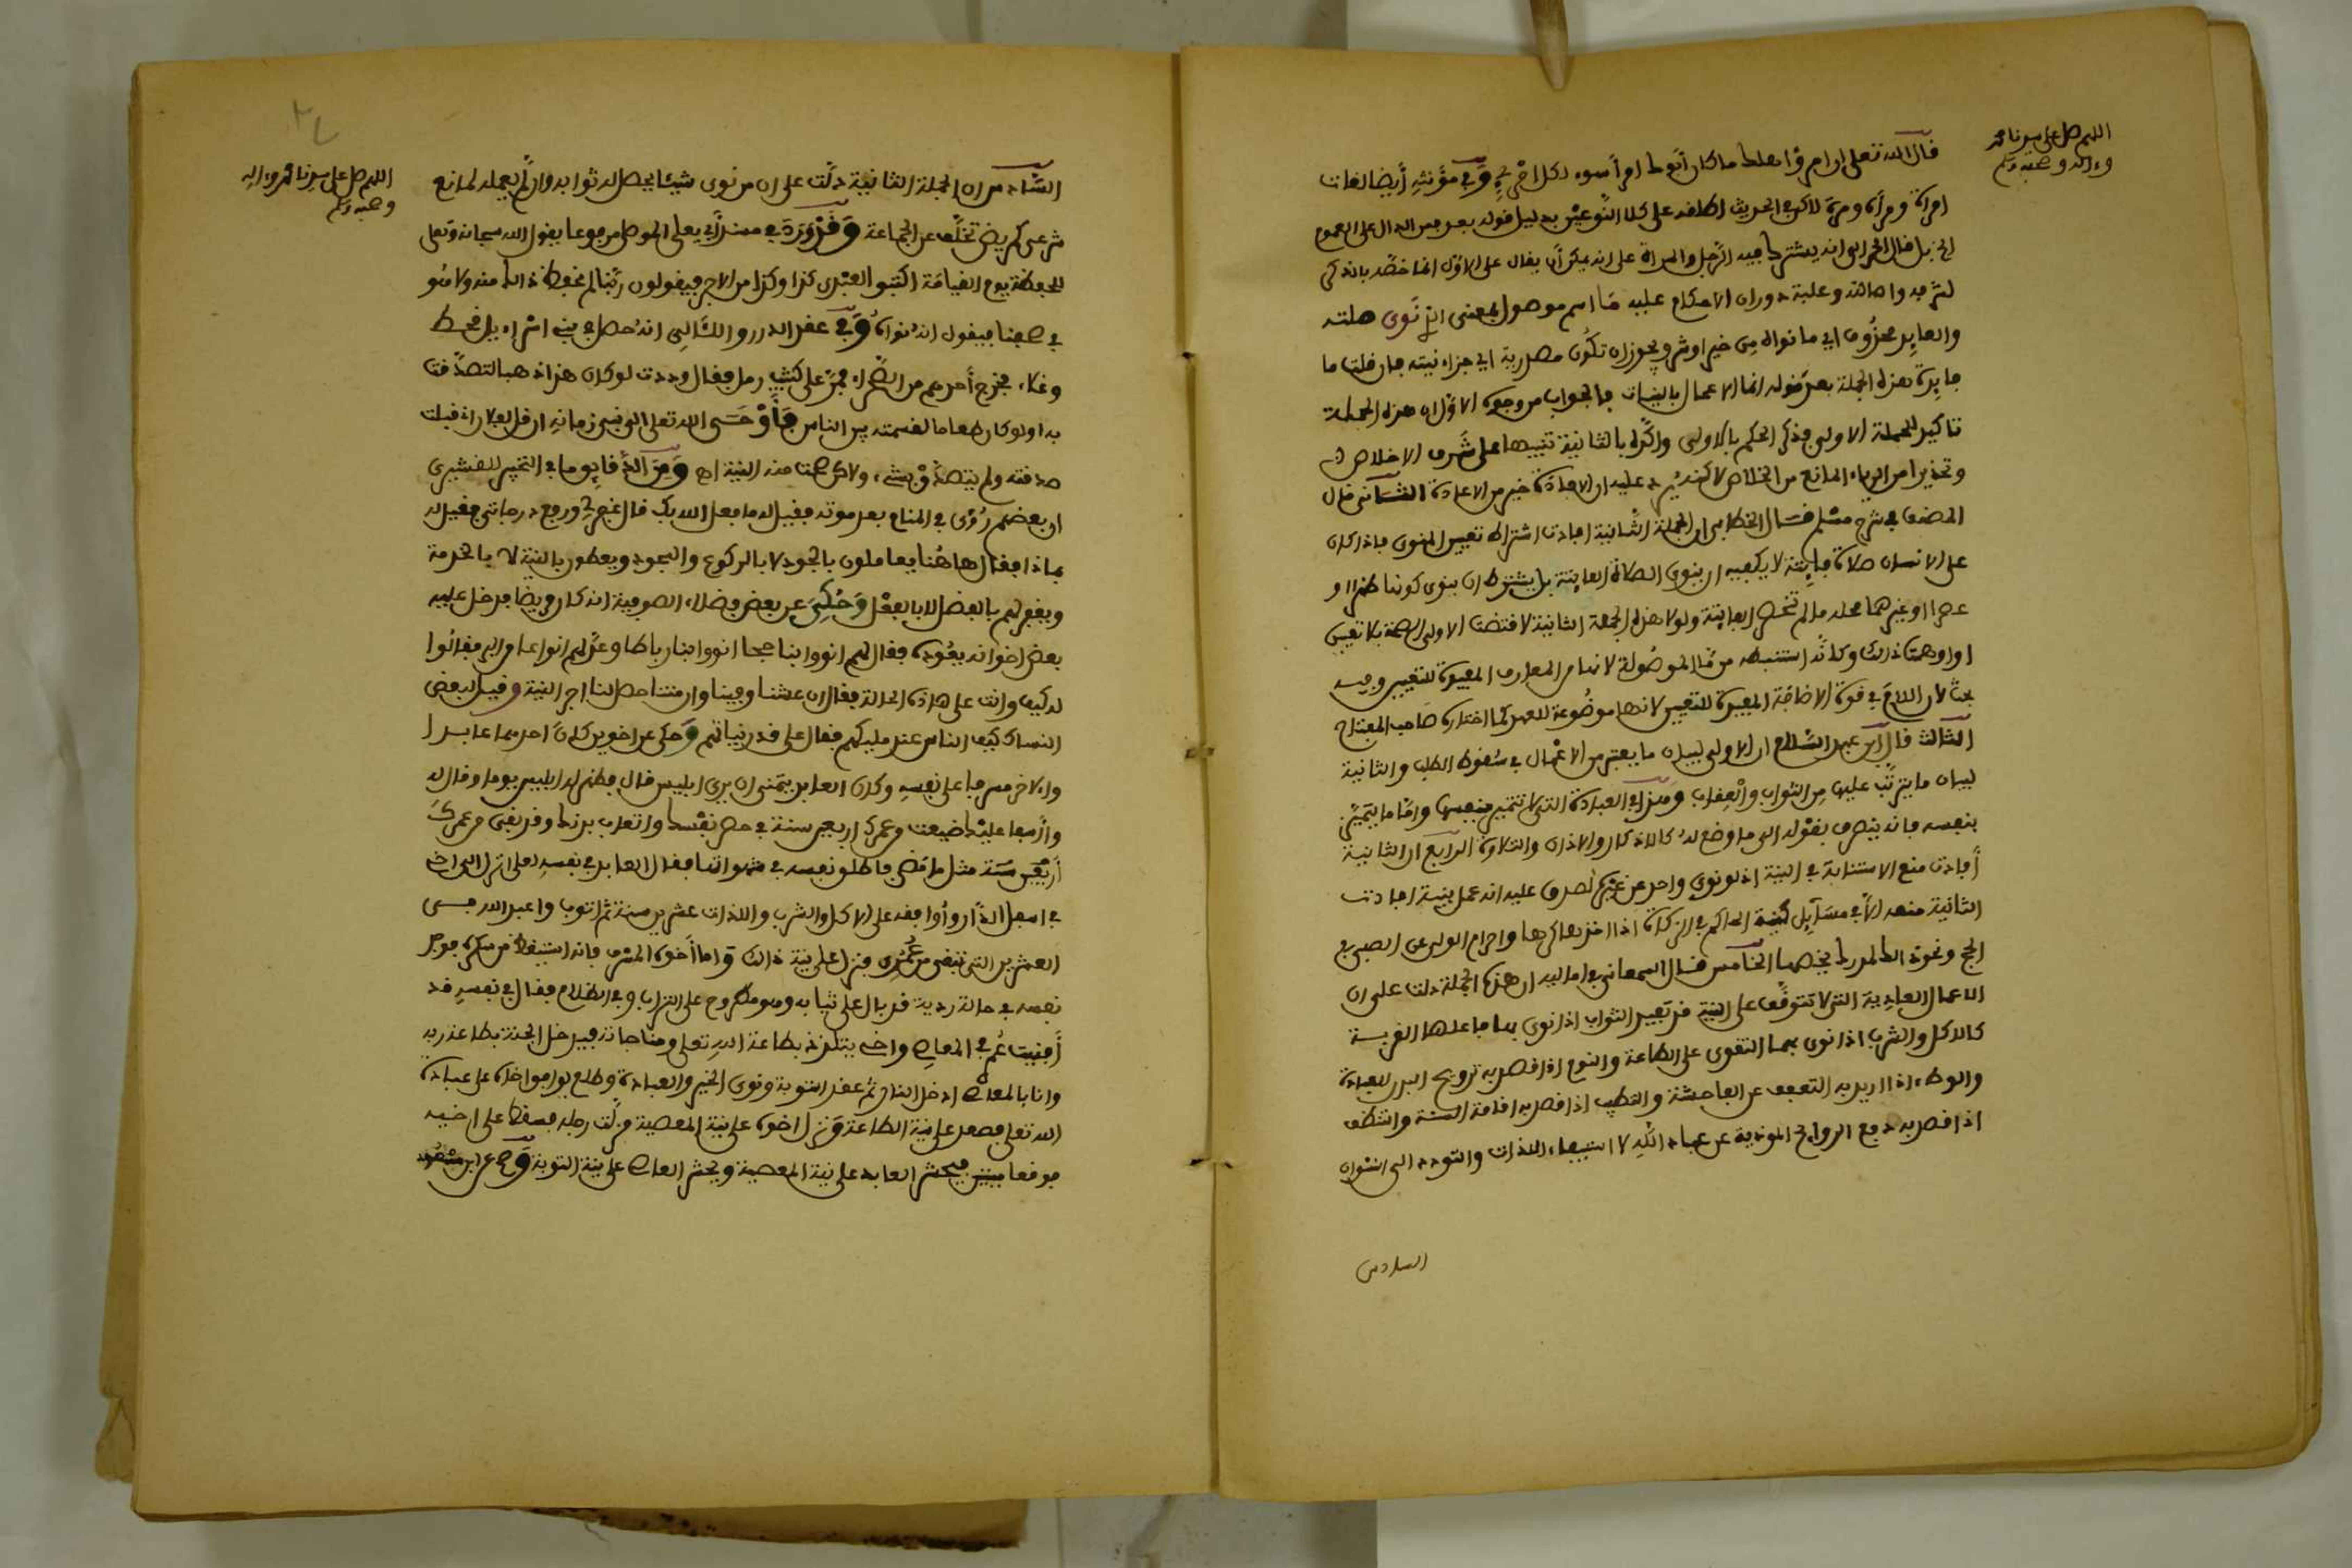 اللهم صل على سيدنا محمد
وءاله وصحبه وسلم
قال الله تعلى ان امرؤا هلك ما كان أبوك امرأ سوء لكل امرئ وفي مؤنثه أيضا لغات
امرأة ومرأة ومرة لاكن في الحديث اطلقه على كلا النوعين بدليل قوله بعد فمن الدال على العموم
الخ بل قال الحرالي انه يشترك فيه الرجل والمرأة على انه يمكن أن يقال على الاول انما خصه بالذكر
لشرفه واصالته وغلبة دوران الاحكام عليه ما اسم موصول بمعنى الذي نوى صلته
والعايد محذوف اي ما نواه من خير او شر ويجوز ان تكون مصدرية اي جزاء نيته فان قلت ما
فايدة هذه الجملة بعد قوله انما الاعمال بالنيات فالجواب من وجوه الاول ان هذه الجملة
تاكيد للجملة الاولى فذكر الحكم بالاولى واكده بالثانية تنبيها على شرف الاخلاص
وتحذيرا من الرياء المانع من الخلاص لاكنه يرد عليه ان الافادة خير من الاعادة الثاني قال
المصنف في شرح مسلم قال الخطابي ان الجملة الثانية افادت اشتراط تعيين المنوي فاذا كان
على الانسان صلاة فايتة لا يكفيه ان ينوي الصلاة الفايتة بل يشترط ان ينوي كونها ظهرا او
عصرا او غيرهما محله ما لم تنحصر الفايتة ولولا هذه الجملة الثانية لاقتضت الاولى الصحة بلا تعيين
او اوهمت ذالك وكأنه استنبطه من ما الموصولة لانها من المعارف المفيدة للتعيين وفيه
بحث لان اللام في قوة الاضافة المفيدة للتعيين لانها موضوعة للعهد كما اختاره صاحب المفتاح
الثالث قال ابن عبد السلام ان الاولى لبيان ما يعتبر من الاعمال في سقوط الطلب والثانية
لبيان ما يترتب عليها من الثواب والعقاب ومنزلة العبادة التي لا تتميز بنفسها واما ما يتميز
بنفسه فانه ينصرف بقوله الى ما وضع له كالاذكار والاذان والتلاوة الرابع ان الثانية
أفادت منع الاستنابة في النية اذ لو نوى واحد عن غيره لصدق عليه انه عمل بنية افادت
الثانية منعه الا في مسايل كنية الحاكم في الزكاة اذا اخذها كرها واحرام الولي عن الصبي في
الحج ونحو ذالك لمدرك يخصها الخامس قال السمعاني في اماليه ان هذه الجملة دلت على ان
الاعمال العادية التي لا تتوقف على النية قد تفيد الثواب اذا نوى بها فاعلها القربة
كالاكل والشرب اذا نوى بهما التقوى على الطاعة والنوم اذا قصد به ترويح البدن للعبادة
والوطء اذا اريد به التعفف عن الفاحشة والتطيب اذا قصد به اقامة السنة والتنظف
اذا قصد به دفع الروايح المؤذية عن عباد الله لا استيفاء اللذات والتودد الى النسوان
السادس
اللهم صل على سيدنا محمد وءاله
وصحبه وسلم
السادس ان الجملة الثانية دلت على ان من نوى شيئا يحصل له ثوابه وان لم يعمله لمانع
شرعي كمريض تخلف عن الجماعة وقد ورد في مسند أبي يعلى الموصلي مرفوعا يقول الله سبحانه وتعلى
للحفظة يوم القيامة اكتبوا لعبدي كذا وكذا من الاجر فيقولون ربنا لم نحفظ ذالك منه ولا هو
في صحفنا فيقول انه نواه وفي عقد الدرر واللئالي انه حصل في بني اسراءيل قحط
وغلاء فخرج أحدهم من الصحراء فمر على كثيب رمل فقال وددت لو كان هذا ذهبا لتصدقت
به او لو كان طعاما لقسمته بين الناس فأوحى الله تعلى الى نبي زمانه ان قل لفلان قد قبلت
صدقته ولم يتصدق بشيء ولاكن صحت منه النية اه ومن الدقايق ما في التحبير للقشيري
ان بعضهم رؤي في المنام بعد موته فقيل له ما فعل الله بك قال غفر لي ورفع درجاتي فقيل له
بماذا فقال هاهنا يعاملون بالجود لا بالركوع والسجود ويعطون بالنية لا بالخدمة
ويغفر لهم بالفضل لا بالفعل وحكي عن بعض فضلاء الصوفية انه كان مريضا فدخل عليه
بعض اخوانه يعوده فقال لهم انووا بنا حجا انووا بنا رباطا وعد لهم انواعا من البر فقالوا
له كيف وانت على هاذه الحالة فقال ان عشنا وفينا وان متنا حصل لنا اجر النية وقيل لبعض
النساك كيف الناس عند مليكهم فقال على قدر نياتهم وحكي عن اخوين كان احدهما عابدا
والاخر مسرفا على نفسه وكان العابد يتمنى ان يرى ابليس قال فظهر له ابليس يوما وقال له
وا أسفا عليك ضيعت من عمرك اربعين سنة في حصر نفسك واتعاب بدنك وقد بقي من عمرك
أربعين سنة مثل ما مضى فاطلق نفسك في شهواتها فقال العابد في نفسه لعلي انزل الى اخي
في اسفل الدار وأوافقه على الاكل والشرب واللذات عشرين سنة ثم اتوب واعبد الله في
العشرين التي تبقى من عمري فنزل على نية ذالك واما اخوه المسرف فانه استيقظ من سكره فوجد
نفسه في حالة ردية قد بال على ثيابه وهو مطروح على التراب وفي الظلام فقال في نفسه قد
أفنيت عمري في المعاصي واخي يتلذذ بطاعة الله تعلى ومناجاته فيدخل الجنة بطاعة ربه
وانا بالمعاصي ادخل النار ثم عقد التوبة ونوى الخير والعبادة وطلع ليوافق اخاه على عبادة
الله تعلى فصعد على نية الطاعة ونزل اخوه على نية المعصية فزلت رجله فسقط على اخيه
فوقعا ميتين فيحشر العابد على نية المعصية ويحشر العاصي على نية التوبة وصح عن ابن مسعود